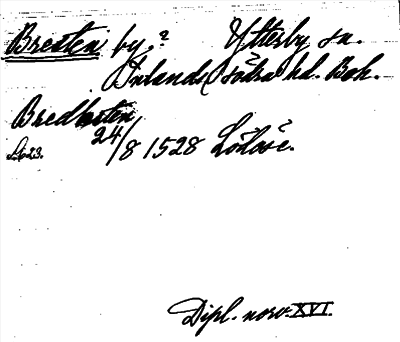 Bresten by? Ytterby sn.
Inlands södra hd. Boh.
Bredhsten
24/8 1528 Lödöse.
Dipl. norv. XVI.